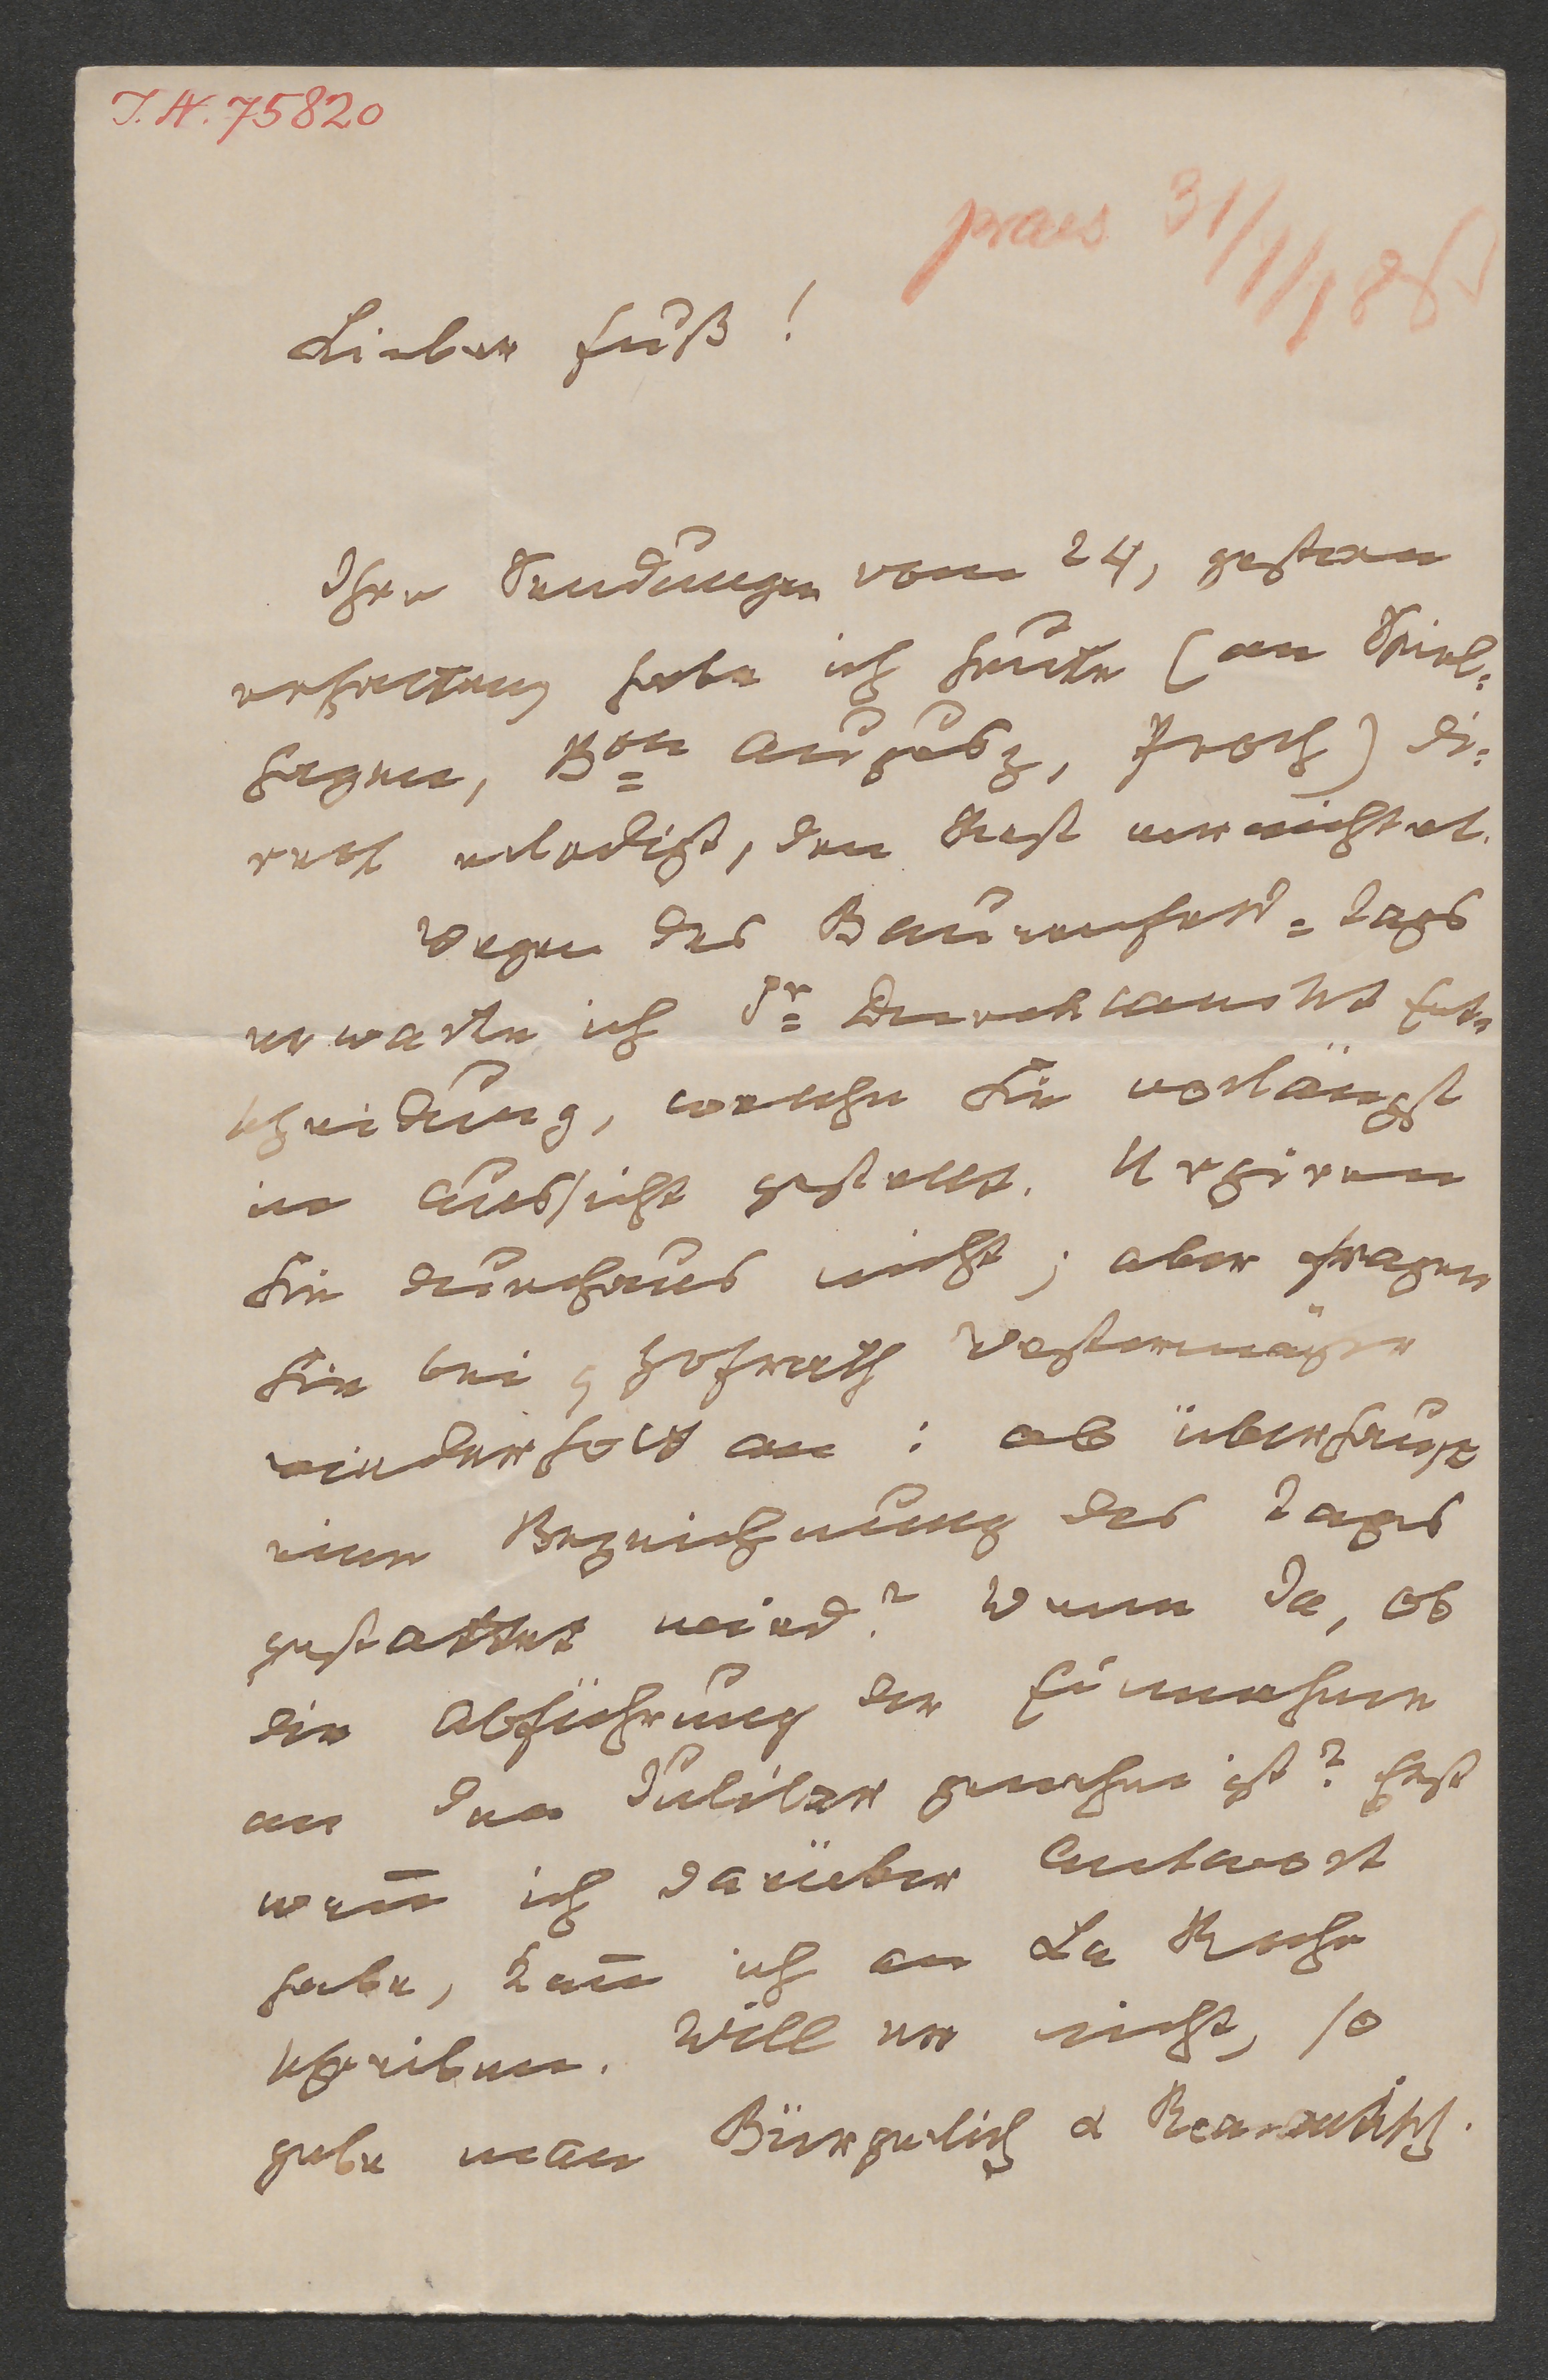 I. N. 75820
praes 31/1/186
Lieber Fuß!
Ihre Sendungen vom 24, gestern
erhalten, habe ich heute (an Spiel-
hagen, Bon Augusz, Proch) di-
rect erledigt, den Rest vernichtet.
Wegen des Bauernfeld-Tags
erwarte ich Sr Durchlaucht Ent-
scheidung, welche Sie vorlängst
in Aussicht gestellt. Urgiren
Sie durchaus nicht; aber fragen
Sie bei H Hofrath Westermayer
wiederholt an: ob überhaupt
eine Bezeichnung des Tages
gestattet wird? Wenn Ja, ob
die Abführung der Einnahme
an den Jubilar genehm ist? Erst
wenn ich darüber Antwort
habe, kann ich an La Roche
schreiben. Will er nicht, so
gebe man Bürgerlich & Romantisch.